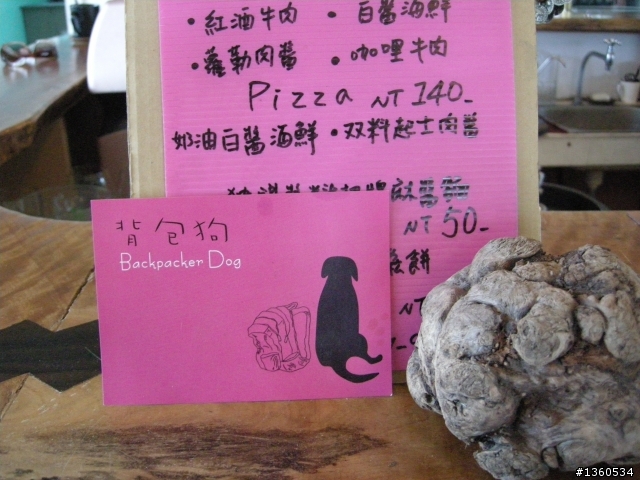 • 紅酒牛肉 • 白醬海鮮
• 蘿勒肉醬 • 咖哩牛肉
Pizza NT 140_
奶油白醬海鮮 • 双料起士肉醬
NT 50_
餅
NT
背包狗
Backpacker Dog
#1360534